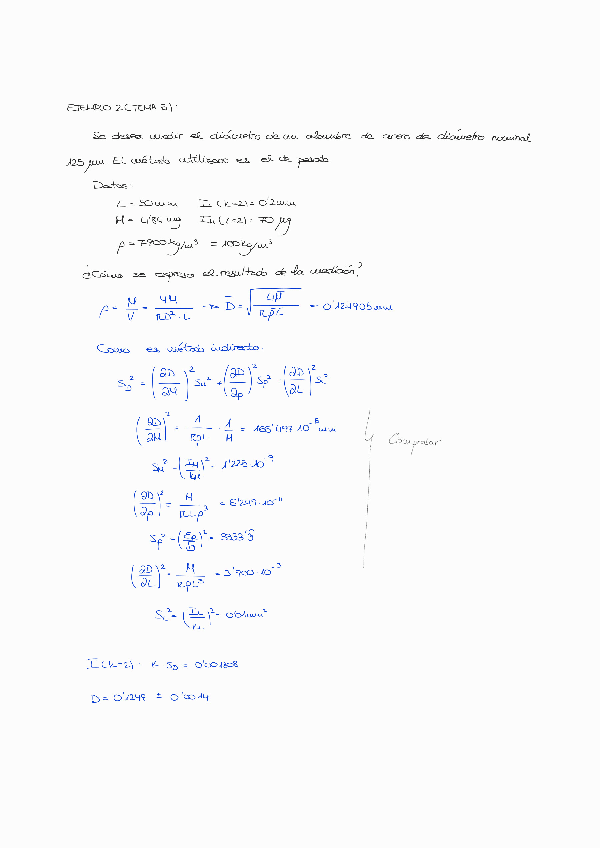 EJEMPLO 2 (TEMA 5):
Se desea medir el diámetro de un alambre de acero de diámetro nominal
125 μm El método utilizado es el de pesado
Datos:
L = 50 mm I_L (k=2) = 0'2 mm
M = 4'84 mg I_M (k=2) = 70 μg
ρ = 7900 kg/m³ ± 100 kg/m³
¿Cómo se expresa el resultado de la medición?
ρ = M/V = 4M/(πD²·L) → D̄ = √(4M̄/(πρ̄L̄)) = 0'124905 mm
Como es método indirecto:
S_D² = (∂D/∂M)² S_M² + (∂D/∂ρ)² S_ρ² (∂D/∂L)² S_L²
(∂D/∂M)² = 1/(πρL) · 1/M =
Comprobar
S_M² = (I_M/k_M)² = 1'225·10⁻⁹
(∂D/∂ρ)² = M/(πLρ³) =
S_ρ² = = 3333'3
(∂D/∂L)² = M/(πρL³) =
S_L² = (I_L/k_L)² = 0'01 mm²
I (k=2): k S_D =
D = 0'1249 ± 0'0014